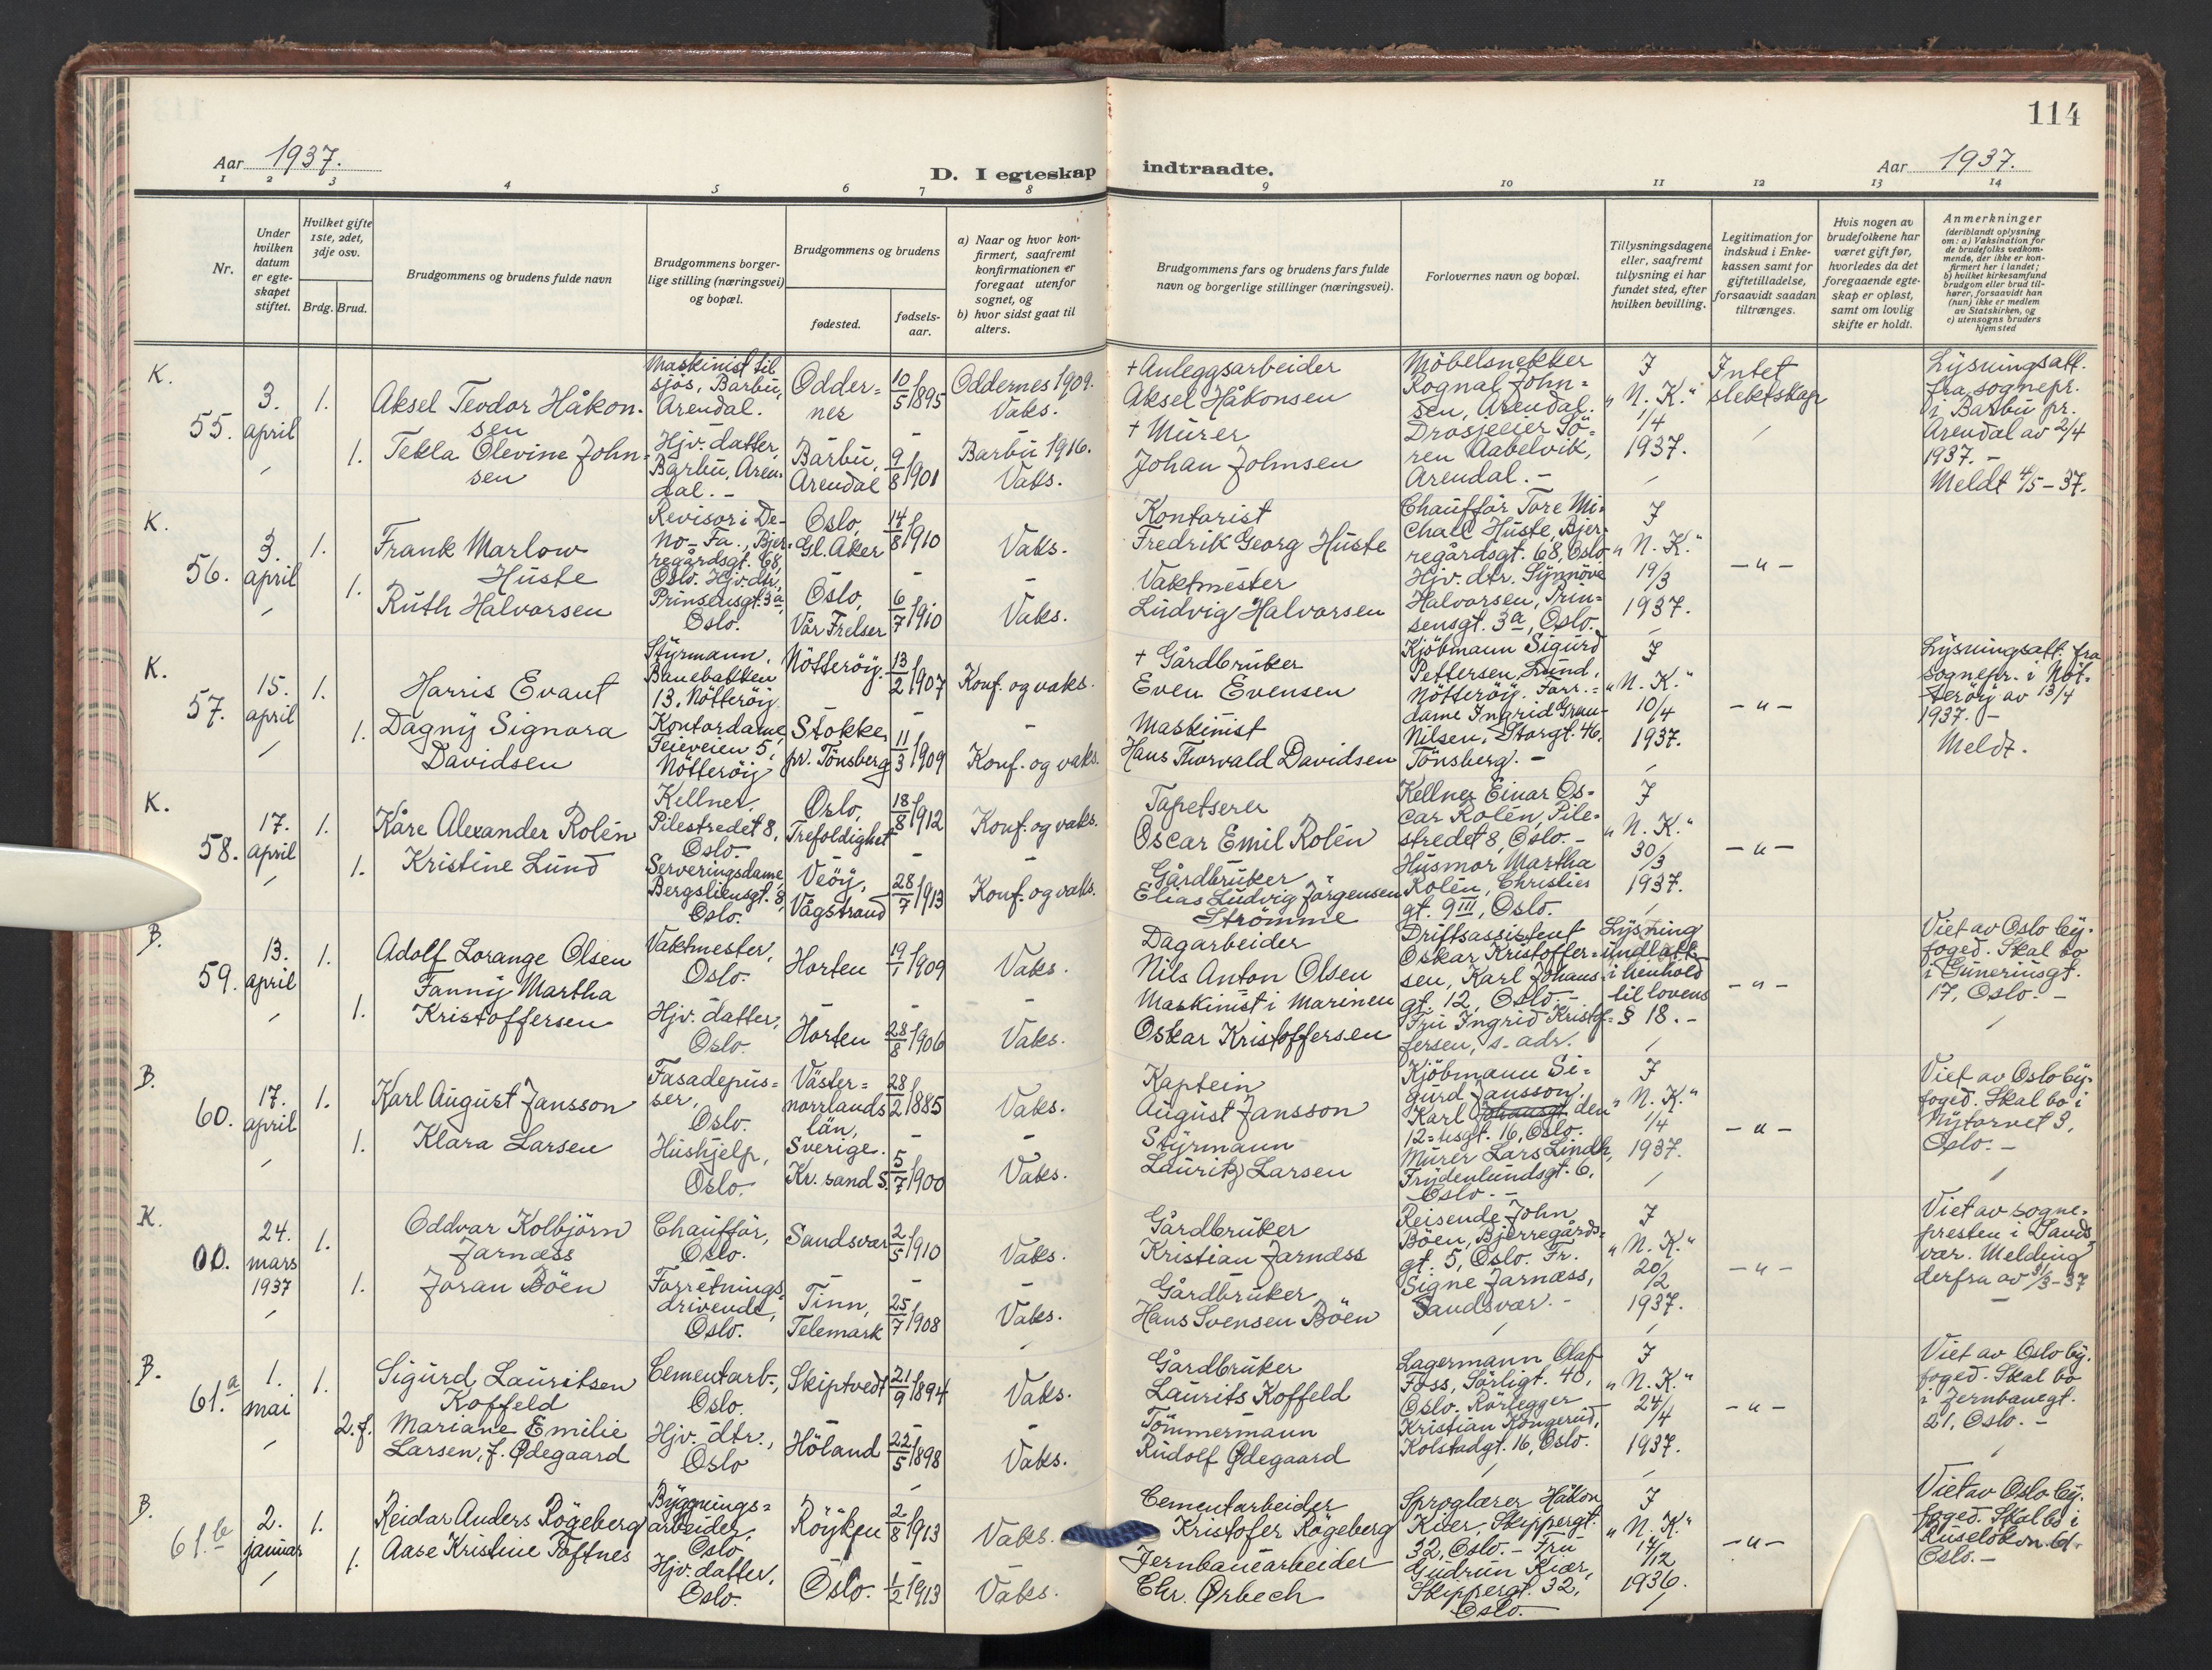 113
114
Aar 1937.
D. I egteskap
indtraadte.
Aar 1937.
1 2 3 4 5 6 7 8 9 10 11 12 13 14
Nr.
Under
hvilken
datum
er egte-
skapet
stiftet.
Hvilket gifte
1ste, 2det,
3dje osv.
Brdg. Brud.
Brudgommens og brudens fulde navn
Brudgommens borger-
lige stilling (næringsvei)
og bopæl.
Brudgommens og brudens
fødested.
fødsels-
aar.
a) Naar og hvor kon-
firmert, saafremt
konfirmationen er
foregaat utenfor
sognet, og
b) hvor sidst gaat til
alters.
Brudgommens fars og brudens fars fulde
navn og borgerlige stillinger (næringsvei).
Forlovernes navn og bopæl.
Tillysningsdagene
eller, saafremt
tillysning ei har
fundet sted, efter
hvilken bevilling.
Legitimation for
indskud i Enke-
kassen samt for
giftetilladelse,
forsaavidt saadan
tiltrænges.
Hvis nogen av
brudefolkene har
været gift før,
hvorledes da det
foregaaende egte-
skap er opløst,
samt om lovlig
skifte er holdt.
Anmerkninger
(deriblandt oplysning
om: a) Vaksination for
de brudefolks vedkom-
mende, der ikke er kon-
firmert her i landet;
b) hvilket kirkesamfund
brudgom eller brud til-
hører, forsaavidt han
(hun) ikke er medlem
av Statskirken, og
c) utensogns bruders
hjemsted
K.
55.
3.
april
1.
1.
Aksel Teodor Håkon-
sen
Tekla Olevine John-
sen
Maskinist til
sjøs, Barbu,
Arendal.
Hjv. datter,
Barbu, Aren-
dal. -
Odder=
nes
Barbu,
Arendal
10/5 1895
9/8 1901
Oddernes 1909.
Vaks.
Barbu 1916.
Vaks.
+ Anleggsarbeider
Aksel Håkonsen
+ Murer
Johan Johnsen
Möbelsnekker
Rognal John=
sen, Arendal.
Drosjeeier Sö=
ren Aabelvik,
Arendal. -
I
"N. K."
1/4
1937.
Intet
slektskap
Lysningsatt.
fra sognepr.
i Barbu pr.
Arendal av 2/4
1937. -
Meldt 4/5-37.
K.
56.
3.
april
1.
1.
Frank Marlow
Huste
Ruth Halvorsen
Revisor i De-
No-Fa., Bjer-
regårdsgt. 68,
Oslo. Hjv. dtr.,
Prinsensgt. 3a,
Oslo.
Oslo,
Gl. Aker
Oslo,
Vår Frelser
14/8 1910
6/7 1910
Vaks.
Vaks.
Kontorist
Fredrik Georg Huste
Vaktmester
Ludvig Halvorsen
Chauffør Tore Mi-
chael Huste, Bjer-
regårdsgt. 68, Oslo
Hjv. dtr. Synnöve
Halvorsen, Prin=
sensgt. 3a, Oslo.
I
"N. K."
19/3
1937.
-"-
K.
57.
15.
april
1.
1.
Harris Evant
Dagny Signora
Davidsen
Styrmann,
Banebakken
13, Nötteröy
Kontordame,
Teieveien 5,
Nötteröy
Nötteröy.
Stokke
pr. Tönsberg
13/2 1907
11/3 1909
Konf. og vaks.
Konf. og vaks.
+ Gårdbruker
Even Evensen
Maskinist
Hans Thorvald Davidsen
Kjöbmann Sigurd
Pettersen, Lund,
Nötteröy. Forr.=
dame Ingrid Grau-
Nilsen, Storgt. 46,
Tönsberg. -
I
"N. K."
10/4
1937.
-"-
Lysningsatt. fra
sognepr. i Nöt-
teröy av 13/4
1937. -
Meldt.
K.
58.
17.
april
1.
1.
Kåre Alexander Rolén
Kristine Lund
Kellner.
Pilestredet 8,
Oslo.
Serveringsdame,
Bergsliensgt. 8,
Oslo.
Oslo,
Trefoldighet
Veöy,
Vågstrand
18/8 1912
28/7 1913
Konf. og vaks.
Konf. og vaks.
Tapetserer
Oscar Emil Rolén
Gårdbruker
Elias Ludvig Jörgensen
Strömme
Kellner Einar Os=
car Rolén, Pile-
stredet 8, Oslo. -
Husmor Martha
Rolén, Christies
gt. 9 III, Oslo.
I
"N. K."
30/3
1937.
-"-
B.
59.
13.
april
1.
1.
Adolf Lorange Olsen
Fanny Martha
Kristoffersen
Vaktmester,
Oslo.
Hjv. datter,
Oslo.
Horten
Horten
19/1 1909
28/8 1906
Vaks.
Vaks.
Dagarbeider
Nils Anton Olsen
Maskinist i Marinen
Oskar Kristoffersen
Driftsassistent
Oskar Kristoffer=
sen, Karl Johans-
gt. 12, Oslo. -
Fru Ingrid Kristof=
fersen, s. adr.
Lysning
undlatt
i henhold
til lovens
§ 18. -
-"-
Viet av Oslo by-
foged. Skal bo
i Guneriusgt.
17, Oslo. -
B.
60.
17.
april
1.
1.
Karl August Jansson
Klara Larsen
Fasadepus=
ser,
Oslo.
Hushjelp,
Oslo.
Väster=
norrlands
län,
Sverige.
Kr. sand S.
28/2 1885
5/7 1900
Vaks.
Vaks.
Kaptein
August Jansson
Styrmann
Lauritz Larsen
Kjöbmann Si=
gurd Jansson,
Karl Johansgt. den
12=tesgt. 16, Oslo.
Murer Lars Lindh,
Frydenlundsgt. 6,
Oslo. -
I
"N. K."
1/4
1937.
-"-
Viet av Oslo by-
foged. Skal bo i
Nytorvet 3,
Oslo. -
K.
00.
24.
mars
1937
1.
1.
Oddvar Kolbjörn
Jarnæss
Joran Böen
Chauffør,
Oslo.
Forretnings-
drivende,
Oslo.
Sandsvær
Tinn,
Telemark
2/5 1910
25/7 1908
Vaks.
Vaks.
Gårdbruker
Kristian Jarnæss
Gårdbruker
Hans Svensen Böen
Reisende John
Böen, Bjerregårds-
gt. 5, Oslo. Fr.
Signe Jarnæss,
Sandsvær. -
I
"N. K."
20/2
1937.
-"-
Viet av sogne-
presten i Sands-
vær. Melding
derfra av 31/3-37
B.
61.a
1.
mai
1.
2. f.
Sigurd Lauritsen
Koffeld
Mariane Emilie
Larsen, f. Ødegaard
Cementarb.,
Oslo.
Hjv. dtr.,
Oslo
Skiptvedt
Höland
21/9 1894
22/5 1898
Vaks.
Vaks.
Gårdbruker
Laurits Koffeld
Tömmermann
Rudolf Ødegaard
Lagermann Olaf
Foss, Sörligt. 40,
Oslo. Rörlegger
Kristian Kongerud,
Kolstadgt. 16, Oslo.
I
"N. K."
24/4
1937.
-"-
Viet av Oslo by.
foged. Skal bo
i Jernbanegt.
21, Oslo. -
B.
61.b
2.
januar
1.
1.
Reidar Anders Rögeberg
Aase Kristine Toftnes
Bygnings=
arbeider,
Oslo
Hjv. datter,
Oslo.
Röyken
Oslo.
2/8 1913
1/2 1913
Vaks.
Vaks.
Cementarbeider
Kristofer Rögeberg
Jernbanearbeider
Chr. Ørbech
Sproglærer Håkon
Kiær, Skippergt.
32, Oslo. - Fru
Gudrun Kiær,
Skippergt. 32,
Oslo.
I
"N. K."
17/12
1936.
-"-
Viet av Oslo by.
foged. Skal bo i
Ruselökvn. 61.
Oslo. -